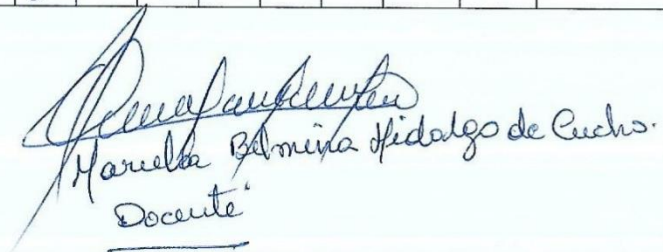 Mariella Belmina Hidalgo de Cucho.
Docente